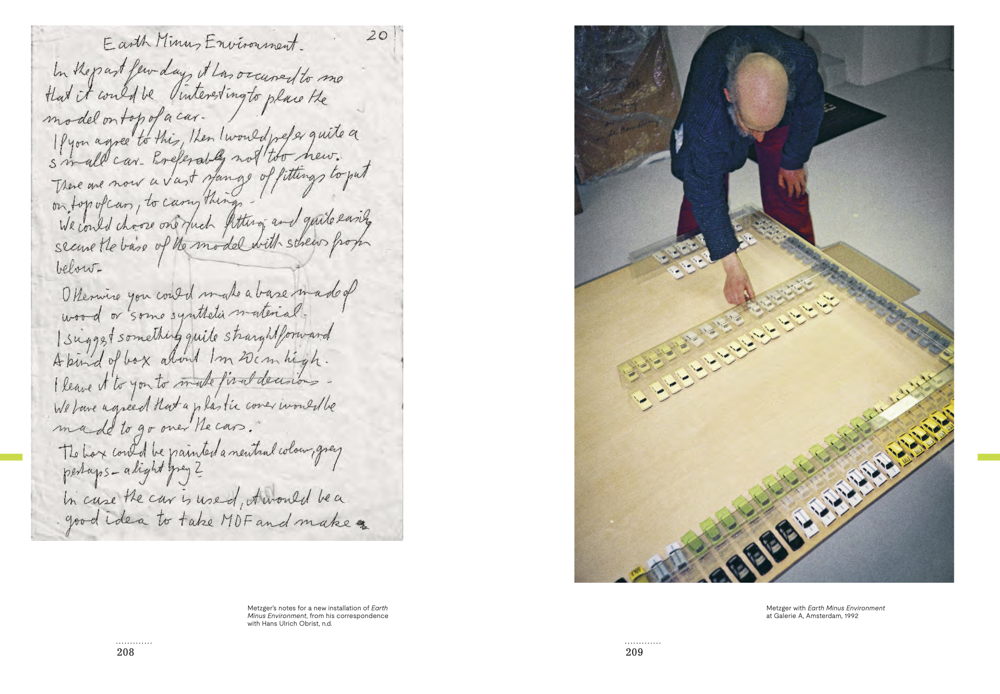 20
Earth Minus Environment.
In the past few days it has occurred to me
that it would be interesting to place the
model on top of a car.
If you agree to this, then I would prefer quite a
small car. Preferably not too new.
There are now a vast range of fittings to put
on top of cars, to carry things.
We could choose one such fitting and quite easily
secure the base of the model with screws from
below.
Otherwise you could make a base made of
wood or some synthetic material.
I suggest something quite straightforward
A kind of box about 1m 20cm high.
I leave it to you to make final decisions.
We have agreed that a plastic cover would be
made to go over the cars.
The box could be painted a neutral colour, grey
perhaps – a light grey?
In case the car is used, it would be a
good idea to take MDF and make a
Metzger's notes for a new installation of Earth
Minus Environment, from his correspondence
with Hans Ulrich Obrist, n.d.
208
Metzger with Earth Minus Environment
at Galerie A, Amsterdam, 1992
209